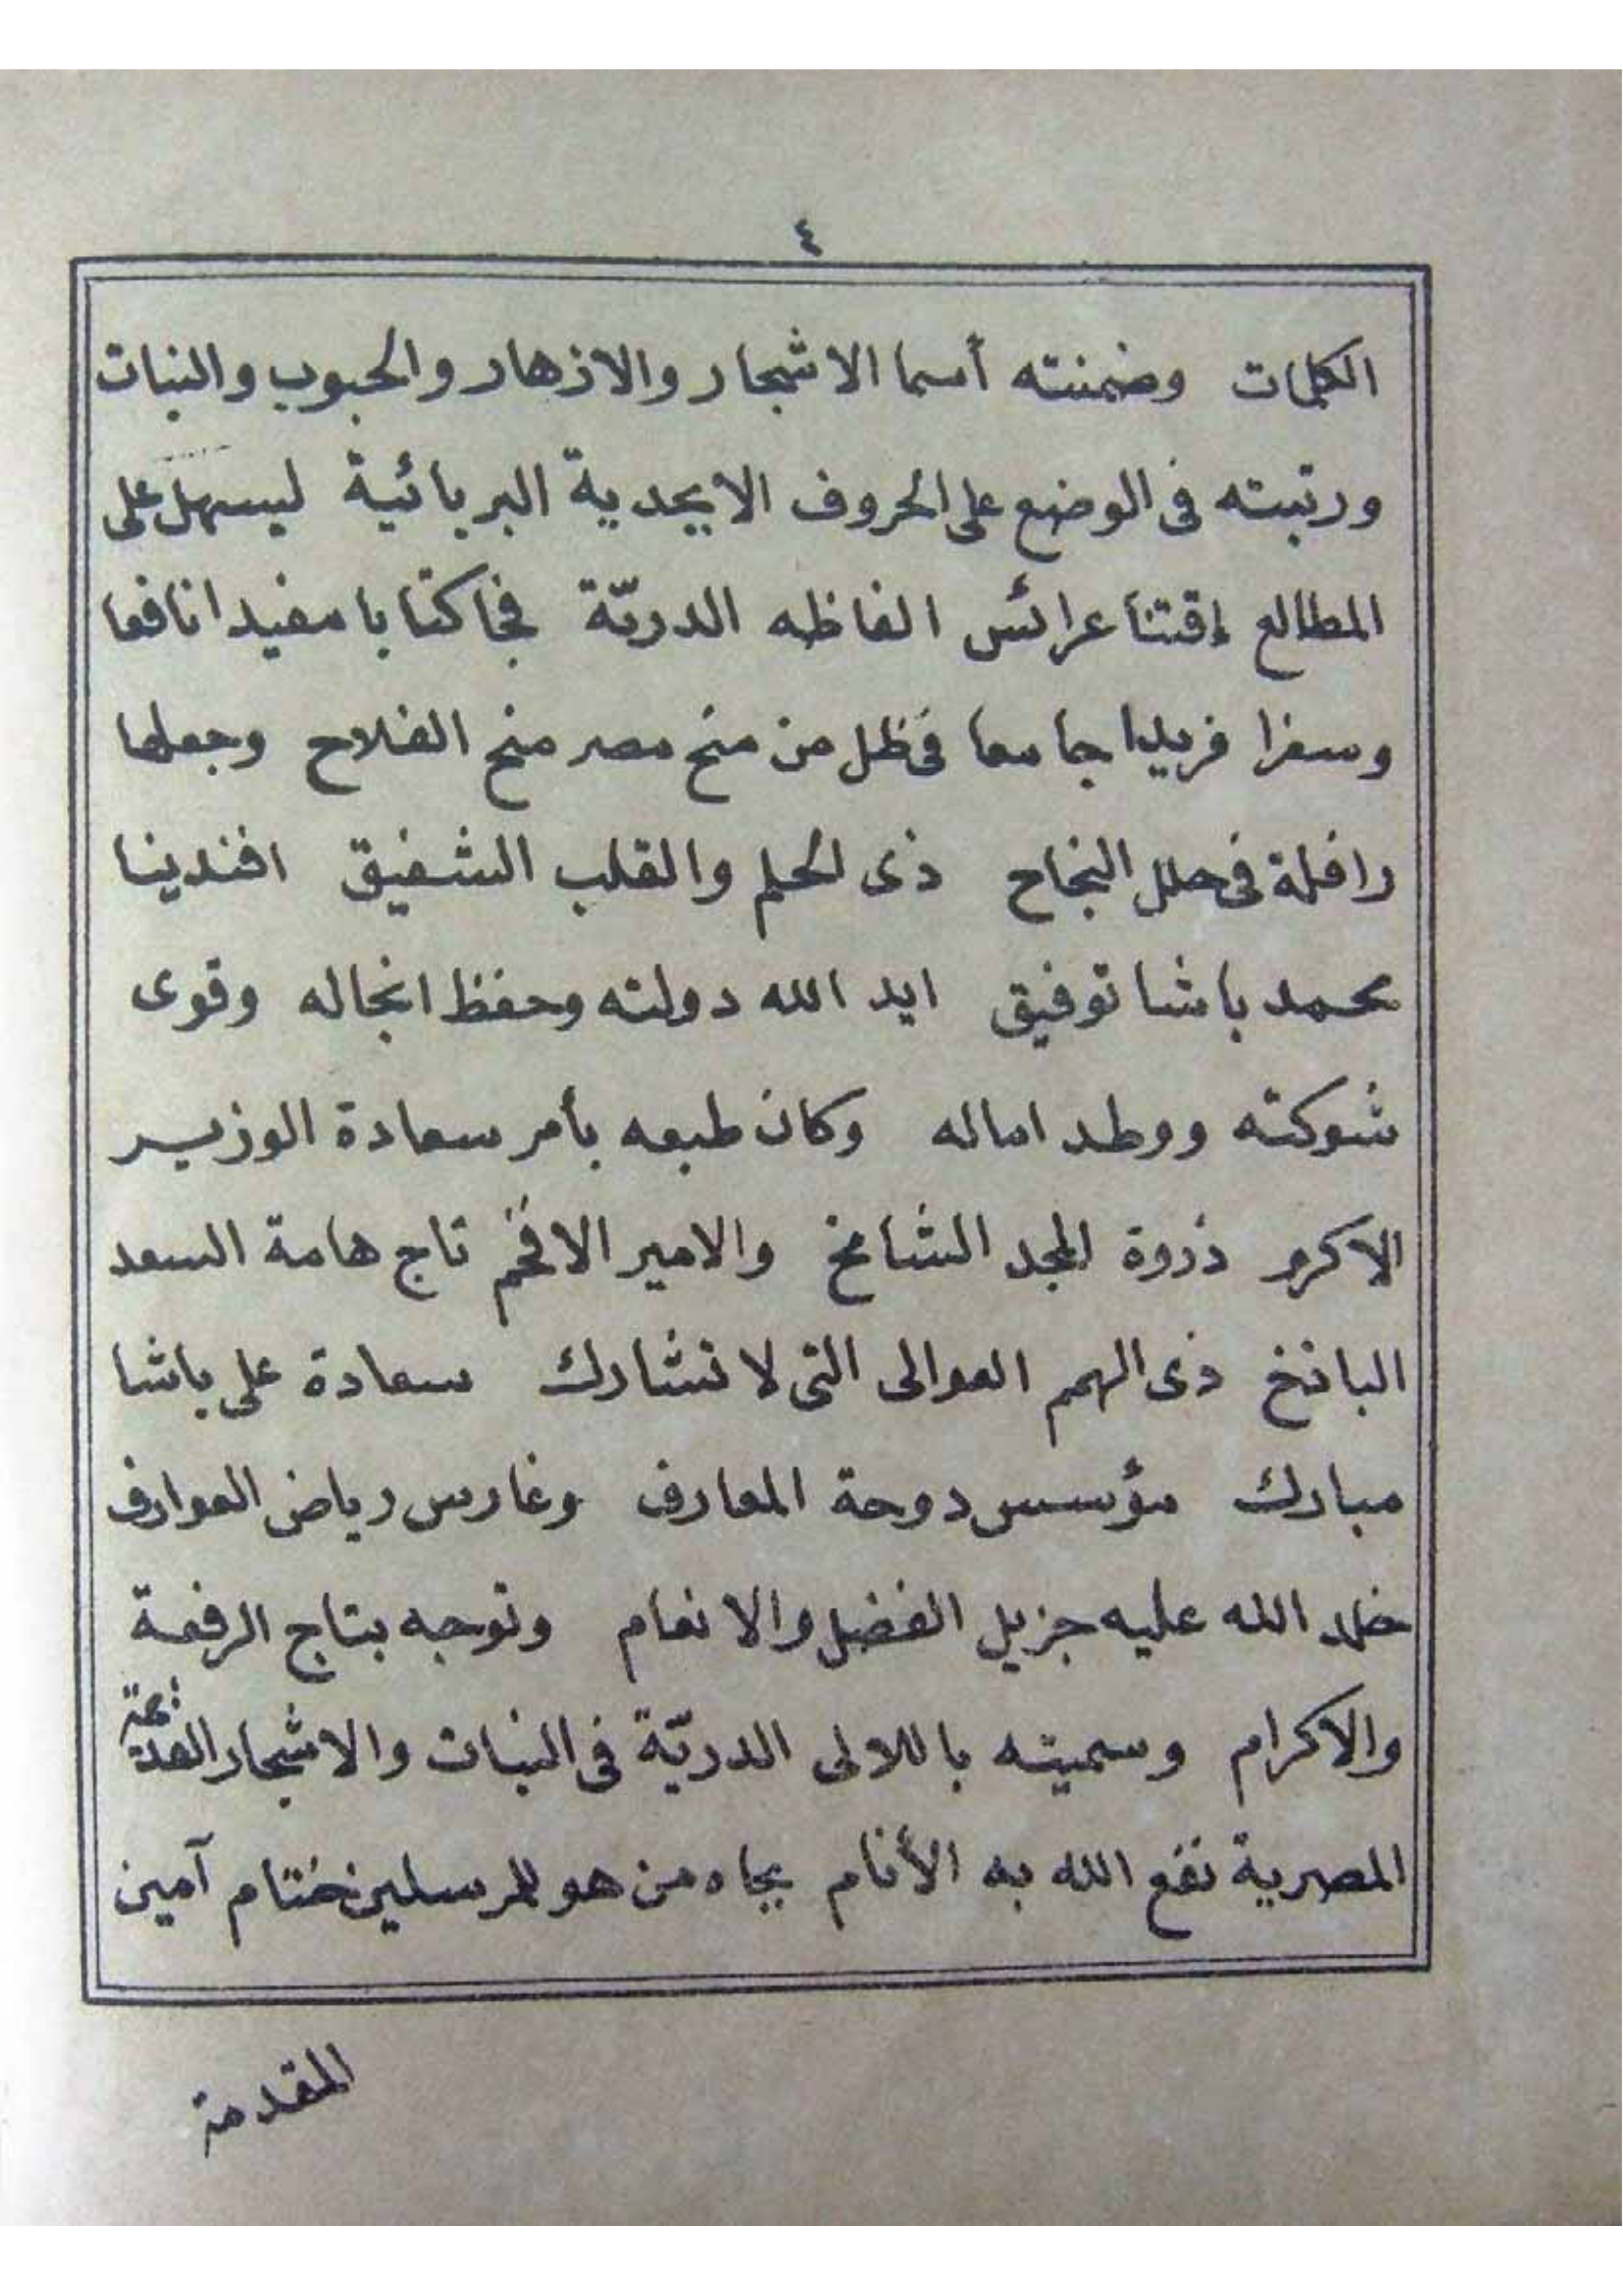 ٤
الكلمات وضمنته أسما الاشجار والازهار والحبوب والنبات
ورتبته فى الوضع على الحروف الابجدية البربائية ليسهل على
المطالع إقتنا عرائس الفاظه الدريّة فجا كتابا مفيدا نافعا
وسفرا فريدا جامعا فى ظل من منح مصر منح الفلاح وجعلها
رافلة فى حلل النجاح ذى الحلم والقلب الشفيق افندينا
محمد باشا توفيق ايد الله دولته وحفظ انجاله وقوى
شوكته ووطد اماله وكان طبعه بأمر سعادة الوزير
الاكرم ذروة المجد الشامخ والامير الافخم تاج هامة السعد
الباذخ ذى الهمم العوالى التى لا تشارك سعادة على باشا
مبارك مؤسس دوحة المعارف وغارس رياض العوارف
خلد الله عليه جزيل الفضل والانعام وتوجه بتاج الرفعة
والاكرام وسميته باللالى الدريّة فى النبات والاشجار القديمة
المصرية نفع الله به الأنام بجاه من هو للمرسلين ختام آمين
المقدمة